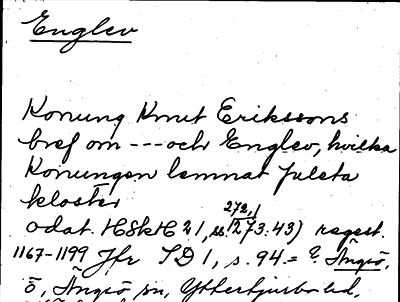 Englev
Konung Knut Erikssons
bref om --- och Englev, hvilka
Konungen lemnat Juleta
kloster
272,1
odat. HSkH 21, s. 273:43) regest.
1167-1199 Jfr SD 1, s. 94. = ? Ängsö,
ö, Ängsö sn, Yttertjurbo hd,